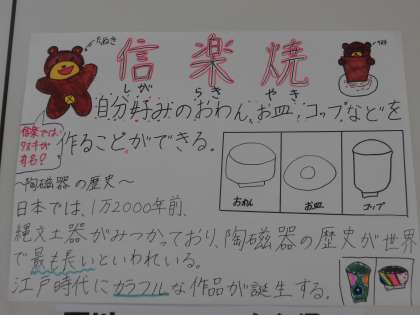 たぬき
信楽焼
しがらきやき
自分好みのおわん、お皿、コップなどを
作ることができる。
信楽では、
タヌキが
有名?
おわん
お皿
コップ
〜陶磁器の歴史〜
日本では、1万2000年前、
縄文土器がみつかっており、陶磁器の歴史が世界
で最も長いといわれいる。
江戸時代にカラフルな作品が誕生する。